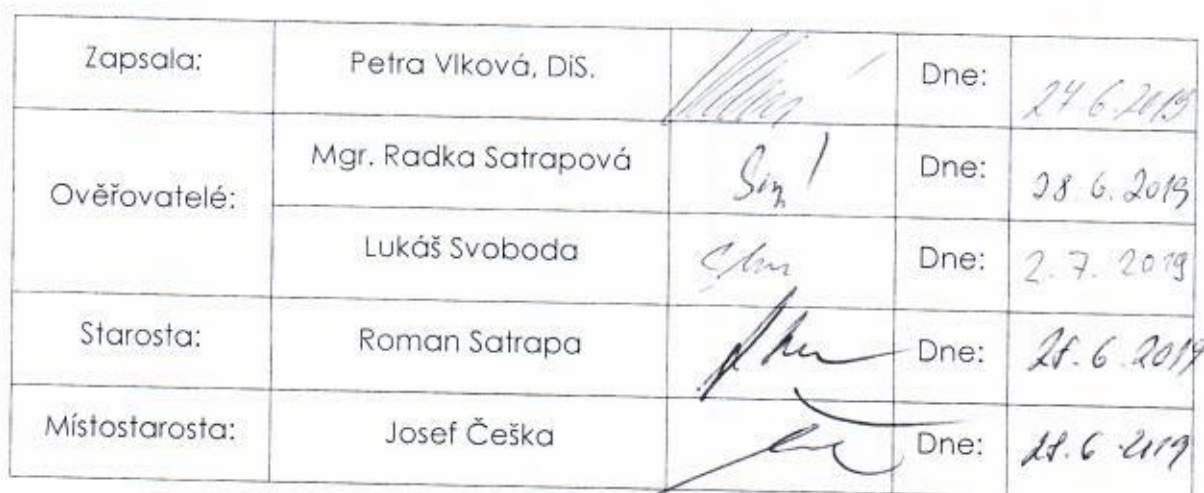 Zapsala: Petra Vlková, DiS. Dne: 24.6.2019
Mgr. Radka Satrapová Dne: 28.6.2019
Ověřovatelé:
Lukáš Svoboda Dne: 2.7.2019
Starosta: Roman Satrapa Dne: 28.6.2019
Místostarosta: Josef Češka Dne: 28.6.2019